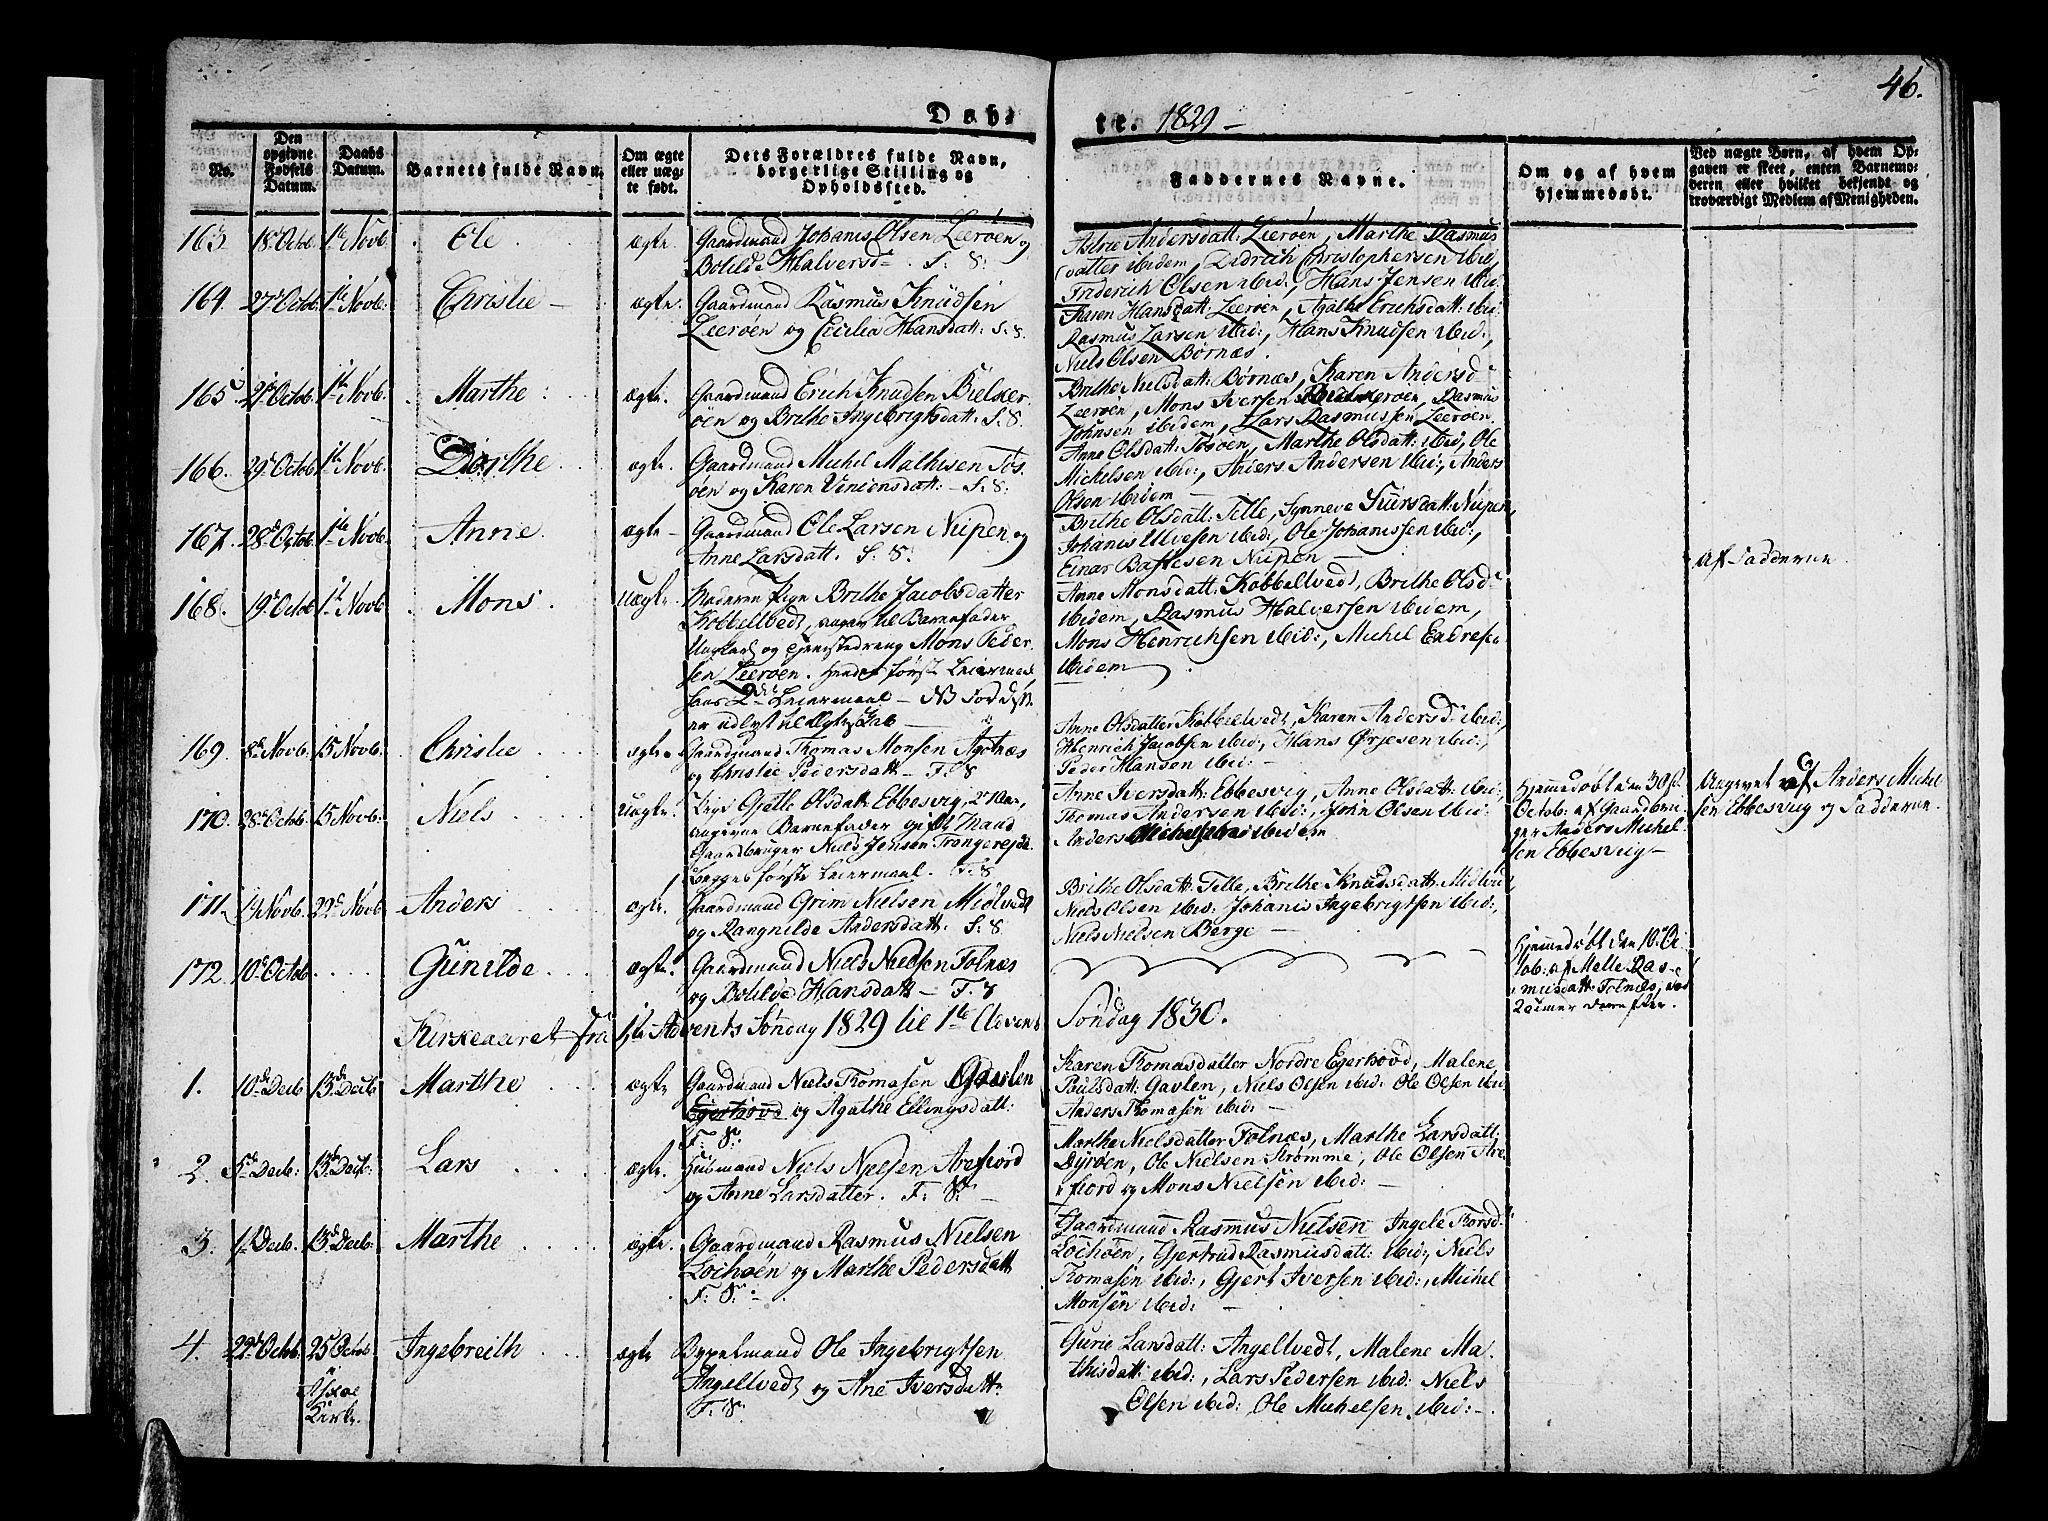 46.
Døbte. 1829 –
No.
Den opgivne Fødsels Datum.
Daabs Datum.
Barnets fulde Navn.
Om ægte eller uægte født.
Dets Forældres fulde Navn, borgerlige Stilling og Opholdssted.
Faddernes Navne.
Om og af hvem hjemmedøbt.
Ved uægte Børn, af hvem Opgaven er skeet, enten Barnemoderen eller hvilket bekjendt og troværdigt Medlem af Menigheden.
163. 18de Octb. 1te Novb. Ole ægte. Gaardmand Johanis Olsen Leerøen og
Bolilde Halversd. S: 8:
Andersdatt: Leerøen, Marthe Rasmus
datter ibidem, Didrich Christophersen ibid,
Friderich Olsen ibid:, Hans Jensen ibid:
164. 27de Octob. 1te Novb: Christie – ægte. Gaardmand Rasmus Knudsen
Leerøen og Cecilia Hansdatt: S: 8.
Karen Hansdatt: Leerøen, Agathe Erichsdatt: ibid:
Rasmus Larsen ibid:, Hans Knudsen ibid:,
Niels Olsen Børnæs.
165. 21de Octob. 1te Novb. Marthe: ægte. Gaardmand Erich Knudsen Bielker
øen og Brithe Ingebrigtsdatt: S: 8.
Brithe Nielsdatt: Børnæs, Karen Andersd
Leerøen, Mons Iversen Bielkerøen, Rasmus
Johnsen ibidem, Lars Rasmussen Leerøen.
166. 29de Octob. 1te Novb. Dorthe ægte. Gaardmand Michel Mathisen Tøs
øen og Karen Vinionsdatt: – S: 8:
Anne Olsdatt: Tøsøen, Marthe Olsdatt: ibid, Ole
Michelsen ibid:, Anders Andersen ibid:, Anders
Olsen ibidem –
167. 28de Octob. 1te Novb. Anne. ægte – Gaardmand Ole Larsen Nipen og
Anne Larsdatt. S: 8:
Brithe Olsdatt: Telle, Synneve Siursdatt: Nipen,
Johanis Ulvesen ibid:, Ole Johanissen ibid:,
Einar Baltesen Nipen –
af Fadderne
168. 19de Octob 1te Novb. Mons. uægte. Moderen Pige Brithe Jacobsdatter
Kobbeltvedt, angav til Barnefader
Ungkarl og tjenstedreng Mons Peder
sen Leerøen. Hendes første Leiermaal,
hans 2det Leiermaal – NB
er udlyst til Ægteskab
Anne Monsdatt: Kobbeltvedt, Brithe Olsd
ibidem, Rasmus Halversen ibidem,
Mons Henrichsen ibid:, Michel Endresen
ibidem
169. 8de Novb. 15 Novb: Christie ægte. Gaardmand Thomas Monsen Agotnæs
og Christie Pedersdatt – F: 8
Anne Olsdatter Kobbeltvedt, Karen Andersd ibid:,
Henrich Jacobsen ibid:, Hans Ørjesen ibid:,
Peder Hansen ibid: –
170. 28de Octob 15 Novb: Niels uægte. Pige Gjølle Olsdatt Ebbesvig, 27 Aar,
angivne Barnefader gift Mand
Gaardbruger Niels Jensen Trengereide.
Begges første Leiermaal. F: 8
Anne Iversdatt: Ebbesvig, Anne Olsdatt: ibid:
Thomas Andersen ibid:, John Olsen ibid:
Anders Michelsen ibidem
Hjemmedøbt den 30te
Octob: af Gaardbru
ger Anders Michel
sen Ebbesvig –
Angivet af Anders Michel
sen Ebbesvig og Fadderne.
171. 14 Novb. 22de Novb Anders ægte. Gaardmand Grim Nielsen Midtvedt
og Rangnilde Andersdatt: S: 8
Brithe Olsdatt: Telle, Brithe Knudsdatt: Midtved,
Niels Olsen ibid: Johanis Ingebrigtsen ibid:,
Niels Nielsen Berge –
172. 10de Octob Gunilde ægte. Gaardmand Niels Nielsen Folnæs
og Bolilde Hansdatt – F. 8
Hjemmedøbt den 10de Oc
tob: af Melle Ras
musdatt Folnæs, død
2 timer derefter.
Kirkeaaret fra 1te Advents Søndag 1829 til 1te Advents Søndag 1830.
1. 10de Decb 13de Decb Marthe ægte Gaardmand Niels Thomasen Gavlen
Egerhovd og Agathe Ellingsdatt:
F: 8:
Karen Thomasdatter Nordre Egerhovd, Malene
Poulsdatt: Gavlen, Niels Olsen ibid: Ole Olsen ibid
Anders Thomasen ibid: –
2. 5te Decb: 13de Decb: Lars ægte. Husmand Niels Nielsen Arefiord
og Anne Larsdatter. F: 8: –
Marthe Nielsdatter Folnæs, Marthe Larsdatt:
Dyrøen, Ole Nielsen Strømme, Ole Olsen Are
fiord og Mons Nielsen ibid: –
3. 1te Decb. 13de Decb: Marthe ægte. Gaardmand Rasmus Nielsen
Loihøen og Marthe Pedersdatt
F: 8: –
Gaardmand Rasmus Nielsen Ingele Thorsd
Loihøen, Gjertrud Rasmusdatt: ibid:, Niels
Thomasen ibid:, Gjert Iversen ibid:, Michel
Monsen ibid: –
4. 22de Octob. 25 Octob Ingebreith ægte Bygselmand Ole Ingebrigtsen
i
Askøe
Kirke.
Angeltvedt og Ane Iversdatt:
F: 8
Gurie Larsdatt: Angeltvedt, Malene Ma
thisdatt: ibid:, Lars Pedersen ibid: Niels
Olsen ibid: Ole Michelsen ibid: –